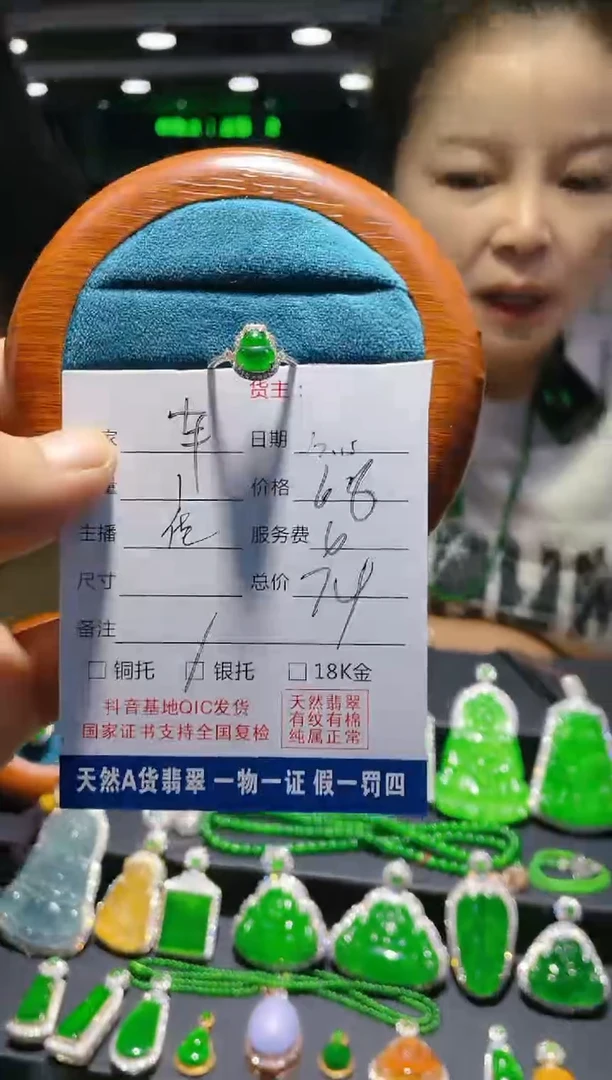 货主：
家 车 日期
价格 68
主播 服务费 6
尺寸 总价 74
备注
□ 铜托 □ 银托 □ 18K金
抖音基地QIC发货
国家证书支持全国复检
天然翡翠
有纹有棉
纯属正常
天然A货翡翠 一物一证 假一罚四